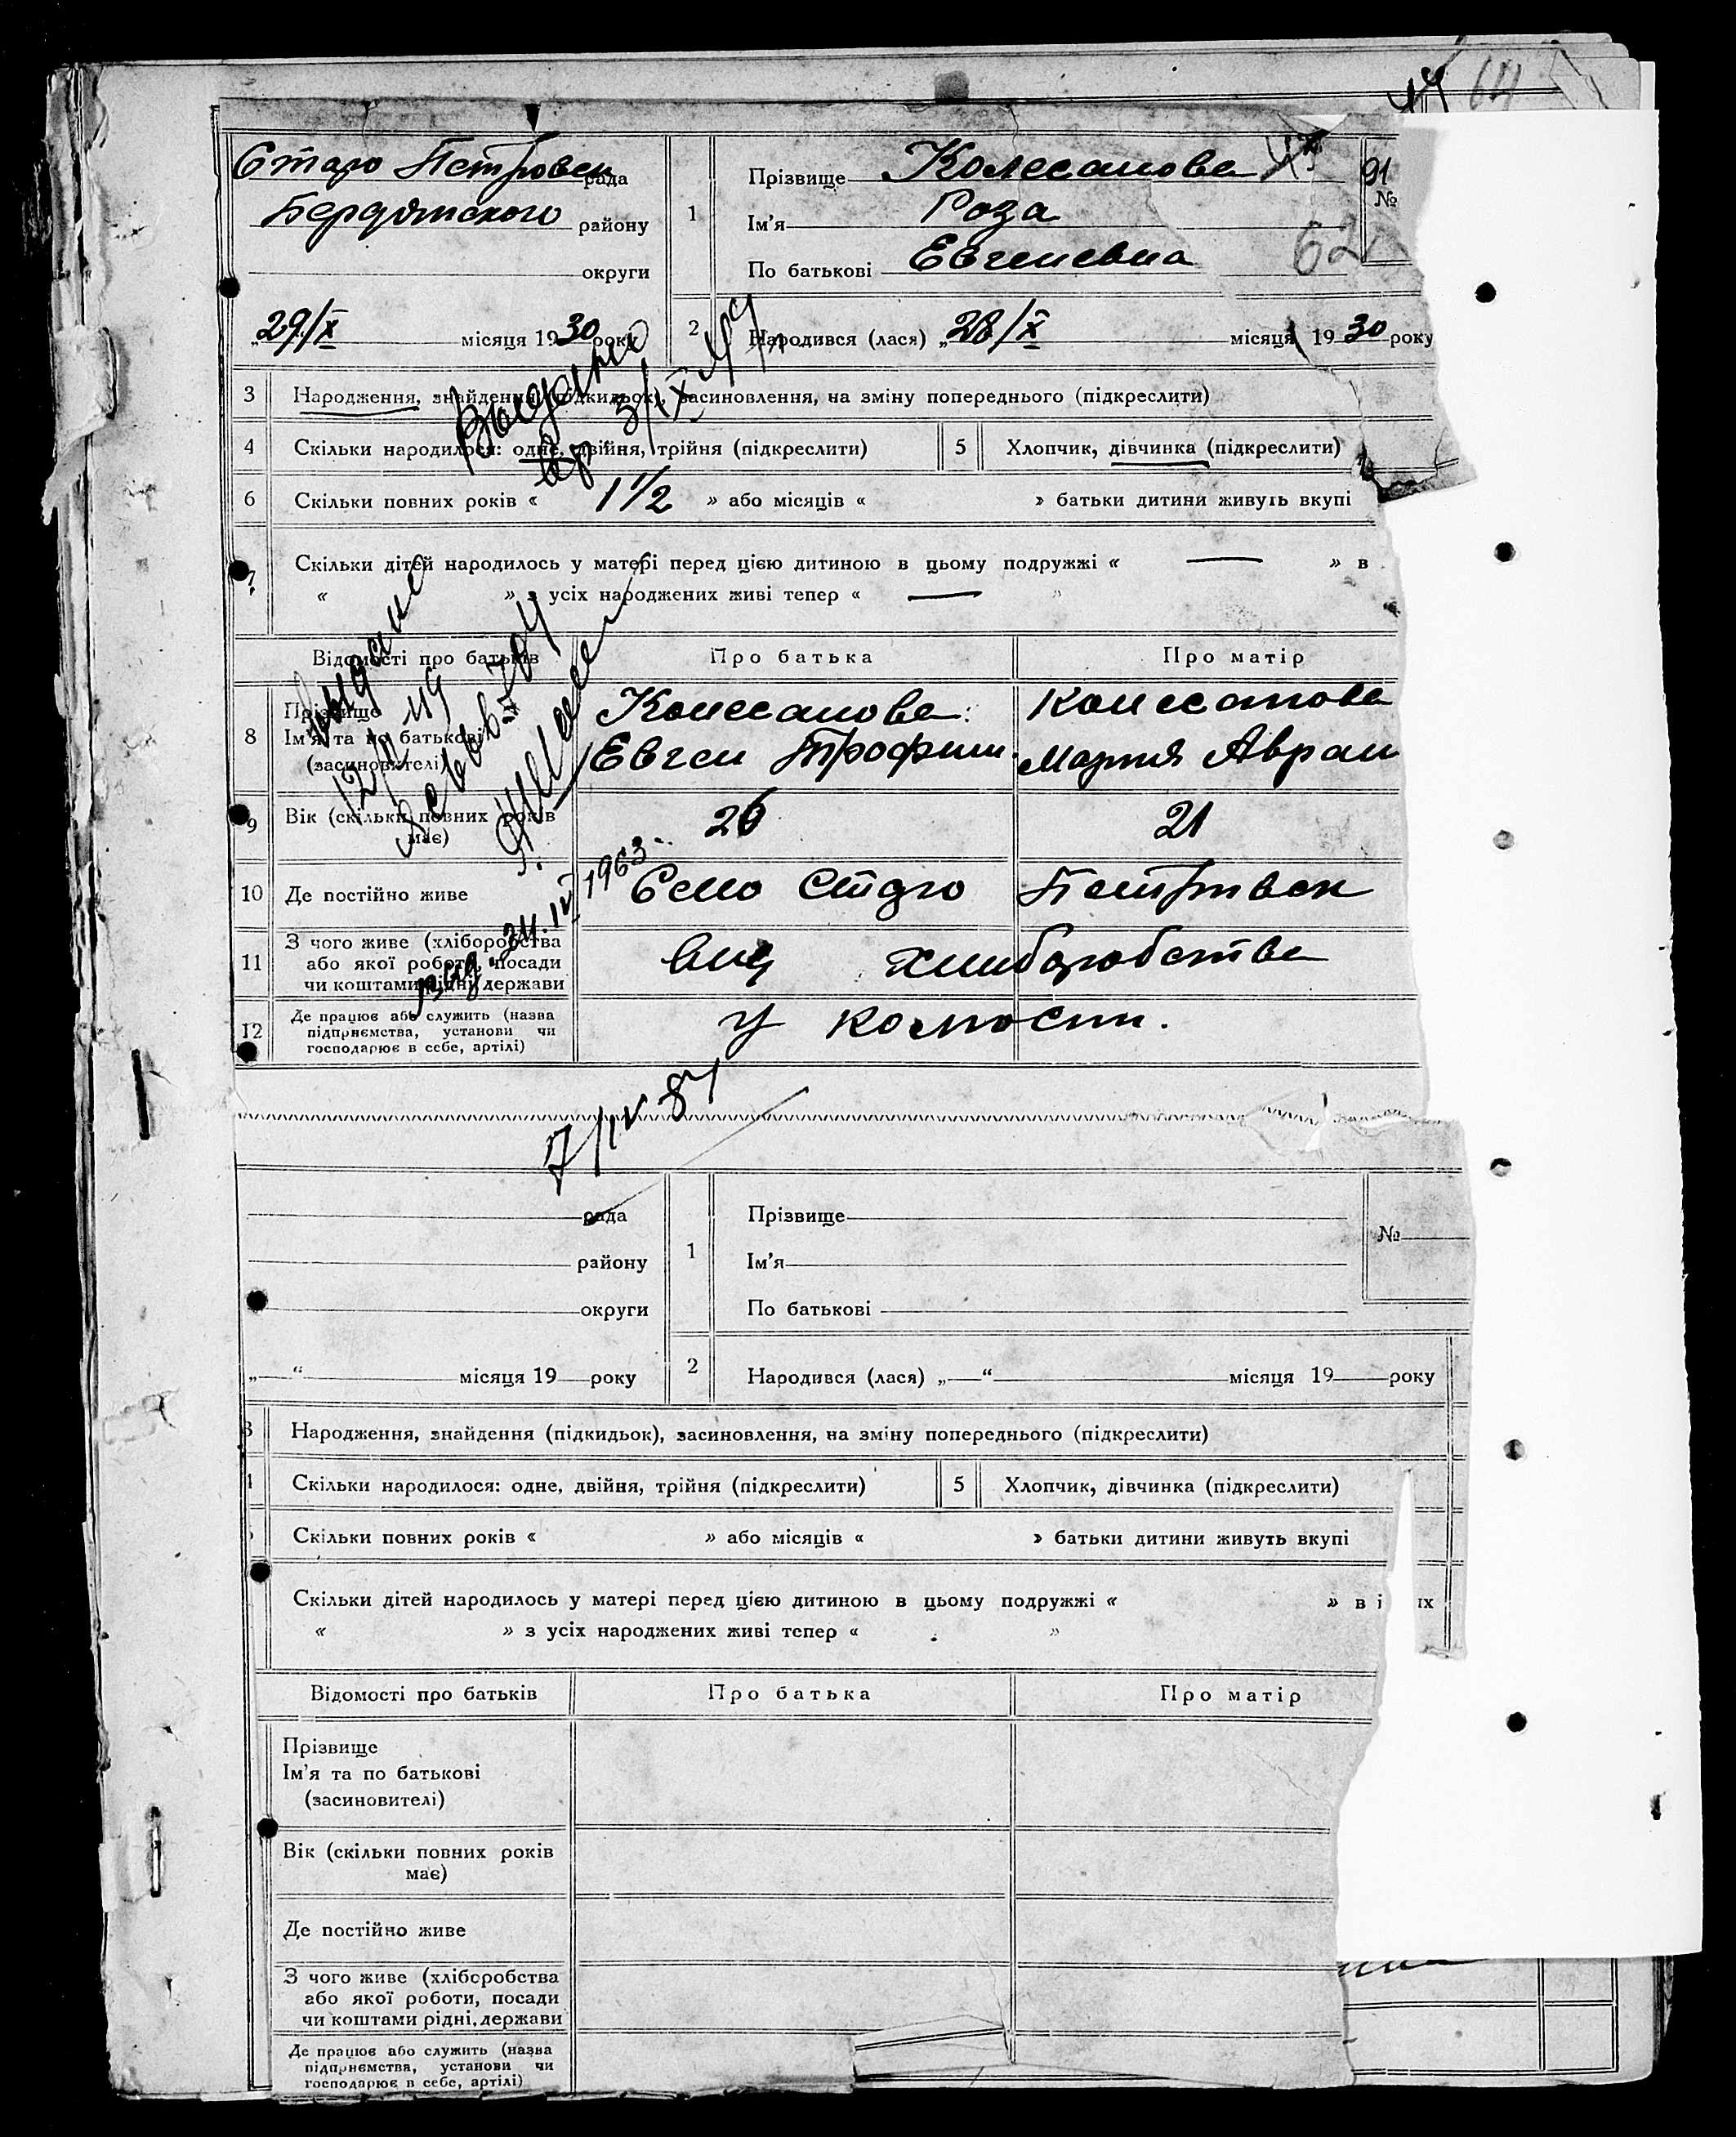 Старо Петровск рада
Бердянского району
округи
29/X місяця 1930 року
1
Прізвище Колесанова
Ім'я Роза
По батькові Евгеневна
91
№
62
2
Народився (лася) „28/X місяця 1930 року
3 Народження, знайдення (підкидьок), засиновлення, на зміну попереднього (підкреслити)
4 Скільки народилося: одне, двійня, трійня (підкреслити)
5 Хлопчик, дівчинка (підкреслити)
6 Скільки повних років « 1 1/2 » або місяців « » батьки дитини живуть вкупі
7 Скільки дітей народилось у матері перед цією дитиною в цьому подружжі « — » в
« » з усіх народжених живі тепер « — »
Відомості про батьків
Про батька
Про матір
8 Прізвище
Ім'я та по батькові
(засиновителі)
Евген Трофим.
Мария Авраам
9 Вік (скільки повних років
має)
26
21
10 Де постійно живе
Село Старо Петровск
11 З чого живе (хліборобства
або якої роботи, посади
чи коштами рідні, держави
від хлиборобства
12 Де працює або служить (назва
підприємства, установи чи
господарює в себе, артілі)
у
Выдано
3/IX 49
видано
12/II 49
вид. 24.IV 1963
7/IV 87
рада
району
округи
„ “ місяця 19 року
1
Прізвище
Ім'я
По батькові
№
2
Народився (лася) „ “ місяця 19 року
3 Народження, знайдення (підкидьок), засиновлення, на зміну попереднього (підкреслити)
Скільки народилося: одне, двійня, трійня (підкреслити)
5 Хлопчик, дівчинка (підкреслити)
Скільки повних років « » або місяців « » батьки дитини живуть вкупі
Скільки дітей народилось у матері перед цією дитиною в цьому подружжі « » в і їх
« » з усіх народжених живі тепер « »
Відомості про батьків
Про батька
Про матір
Прізвище
Ім'я та по батькові
(засиновителі)
Вік (скільки повних років
має)
Де постійно живе
З чого живе (хліборобства
або якої роботи, посади
чи коштами рідні, держави
Де працює або служить (назва
підприємства, установи чи
господарює в себе, артілі)